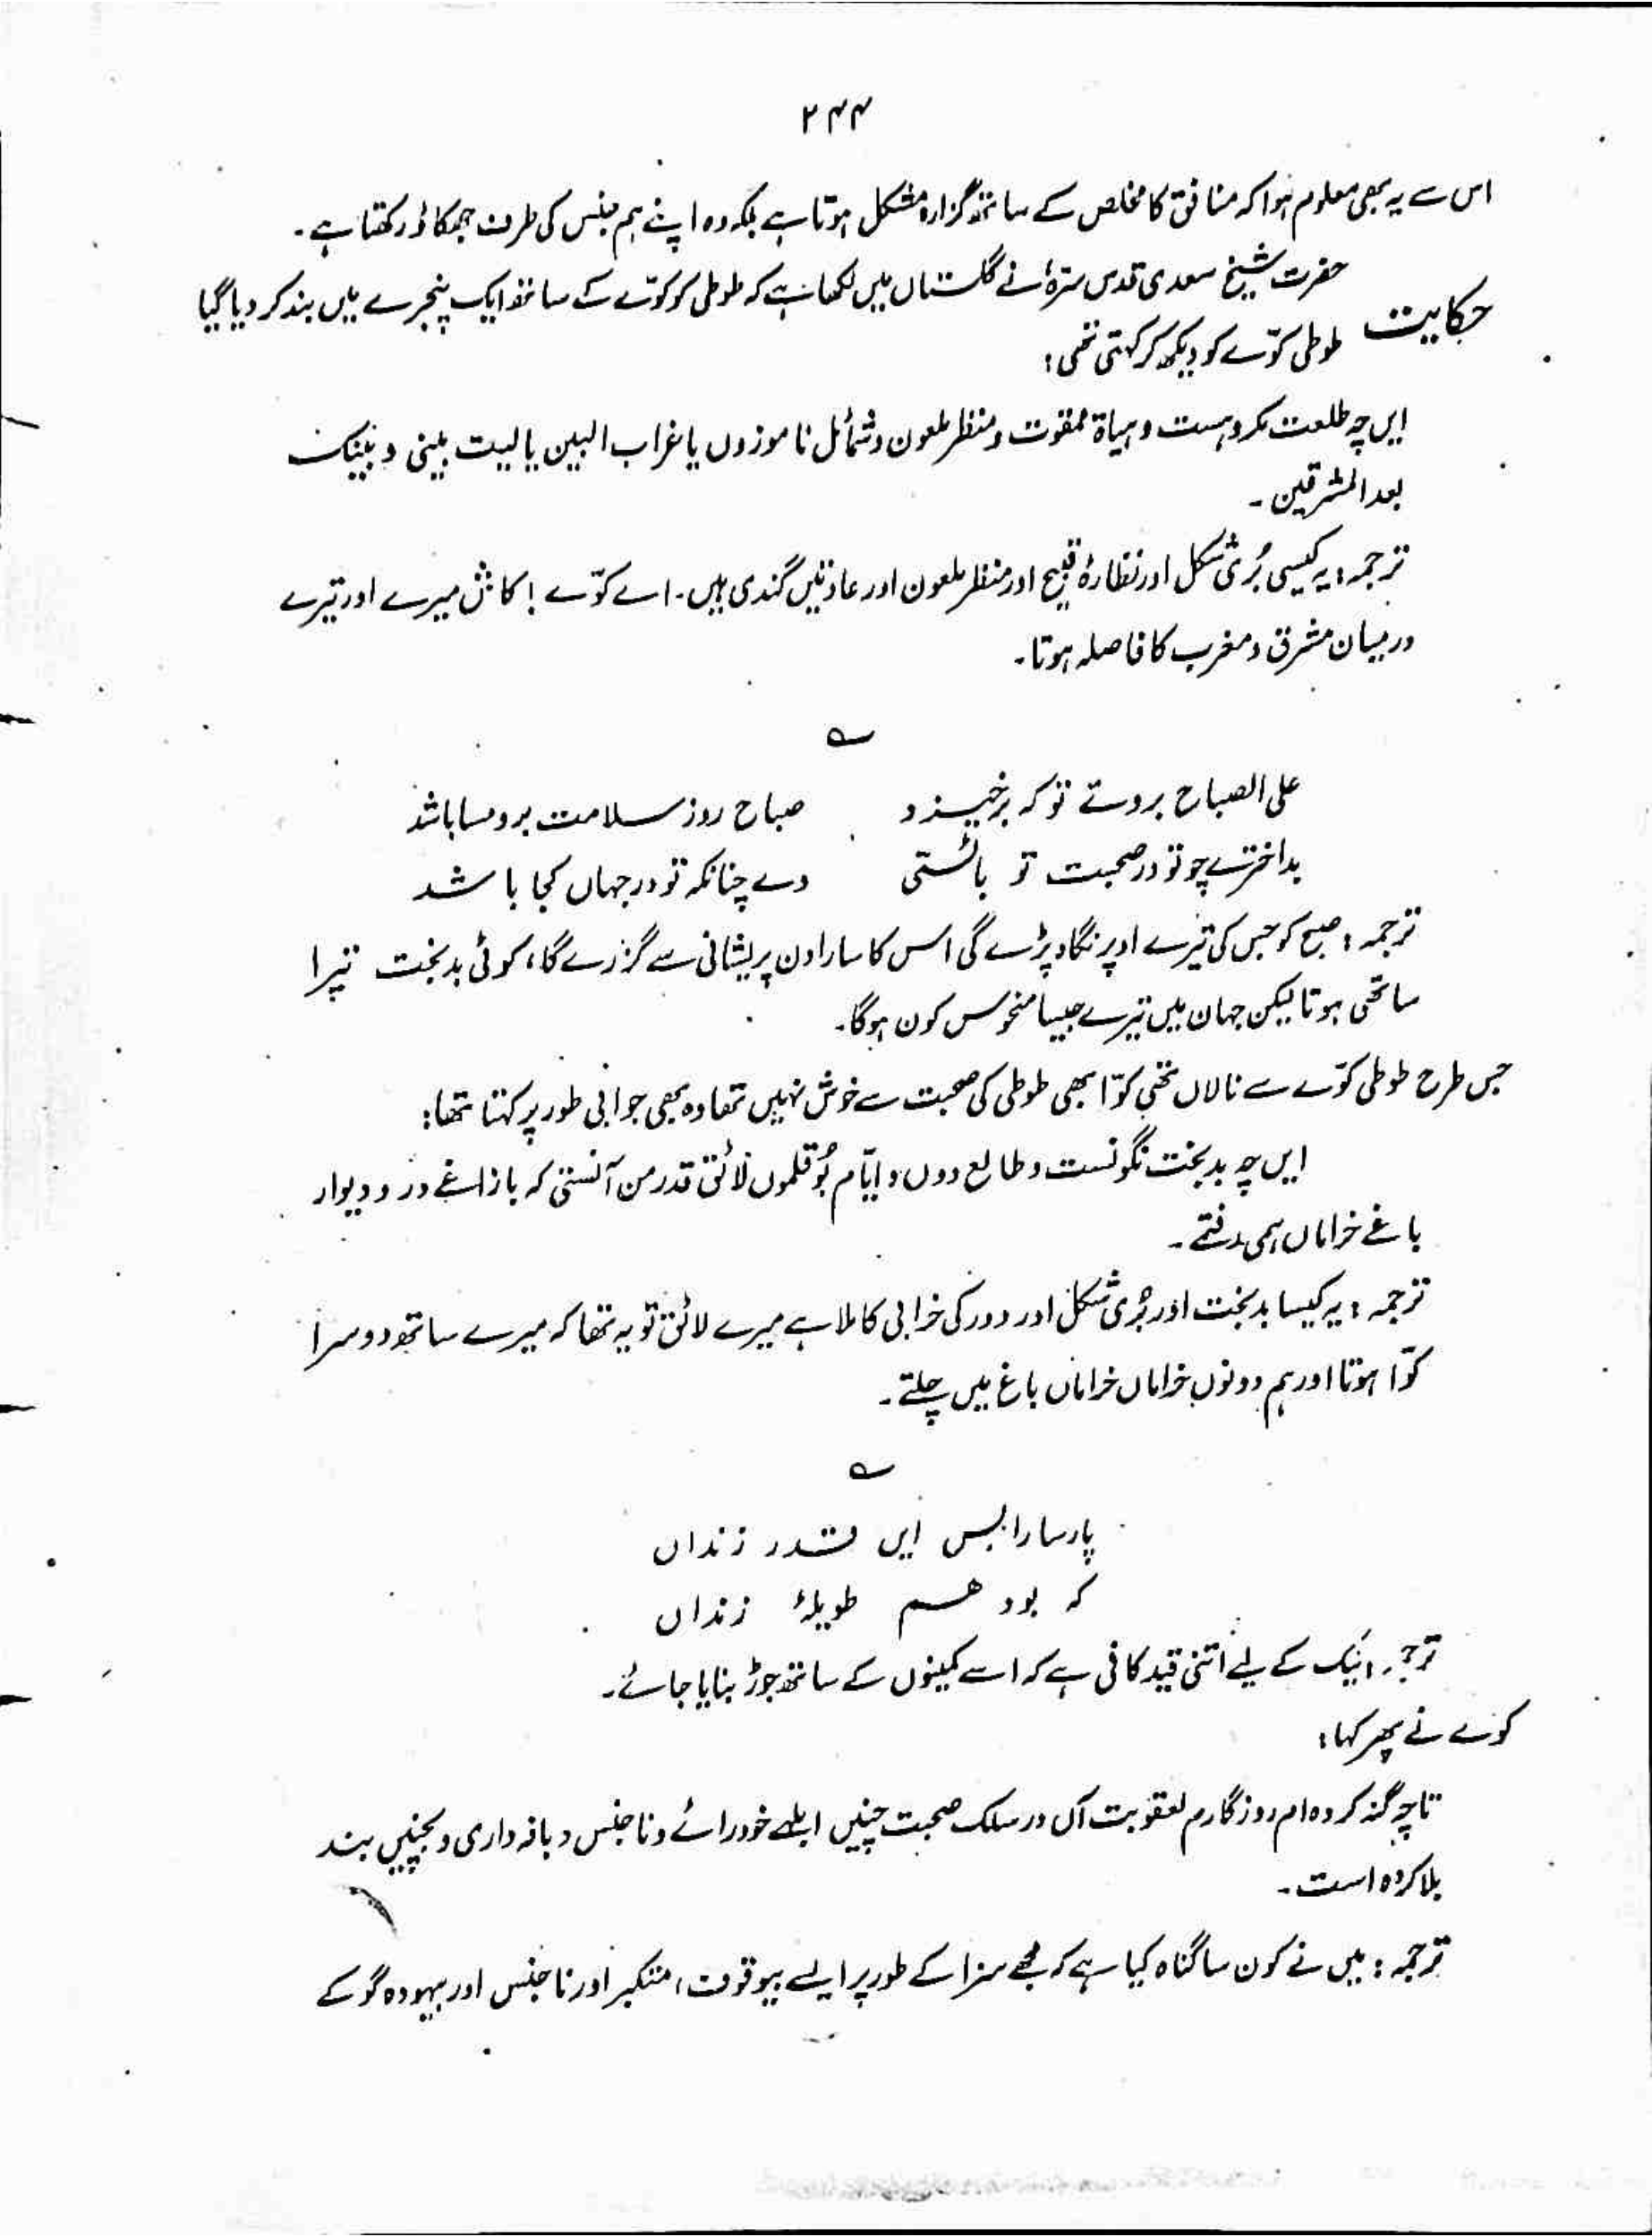 ۲۴۴
اس سے یہ بھی معلوم ہوا کہ منافق کا مخلص کے ساتھ گزارہ مشکل ہوتا ہے بلکہ وہ اپنے ہم جنس کی طرف جھکاؤ رکھتا ہے۔
حکایت حضرت شیخ سعدی قدس سرہٗ نے گلستاں میں لکھا ہے کہ طوطی کو کوّے کے ساتھ ایک پنجرے میں بند کر دیا گیا
طوطی کوّے کو دیکھ کر کہتی تھی:
ایں چہ طلعت مکروہست و ہیاۃ ممقوت و منظر ملعون و شمائل ناموزوں یا غراب البین یا لیت بینی و بینک
بعد المشرقین۔
ترجمہ: یہ کیسی بُری شکل اور نظارہ قبیح اور منظر ملعون اور عادتیں گندی ہیں۔ اے کوّے! کاش میرے اور تیرے
درمیان مشرق و مغرب کا فاصلہ ہوتا۔
؎
علی الصباح بروئے تو کہ برخیزد صباح روز سلامت برو مسا باشد
بداخترے چو تو در صحبت تو بائستی ولے چنانکہ تو در جہاں کجا باشد
ترجمہ: صبح کو جس کی تیرے اوپر نگاہ پڑے گی اس کا سارا دن پریشانی سے گزرے گا، کوئی بدبخت تیرا
ساتھی ہوتا لیکن جہان میں تیرے جیسا منحوس کون ہوگا۔
جس طرح طوطی کوّے سے نالاں تھی کوّا بھی طوطی کی صحبت سے خوش نہیں تھا وہ بھی جوابی طور پر کہتا تھا:
ایں چہ بدبخت نگونست و طالع دوں و ایّام بُوقلموں لائق قدر من آنستی کہ با زاغے در و دیوار
باغے خراماں ہمی رفتے۔
ترجمہ: یہ کیسا بدبخت اور بُری شکل اور دور کی خرابی کا ملا ہے میرے لائق تو یہ تھا کہ میرے ساتھ دوسرا
کوّا ہوتا اور ہم دونوں خراماں خراماں باغ میں چلتے۔
؎
پارسا را بس ایں قدر زنداں
کہ بود ہم طویلۂ زنداں
ترجمہ: نیک کے لیے اتنی قید کافی ہے کہ اسے کمینوں کے ساتھ جوڑ بنایا جائے۔
کوے نے پھر کہا:
تا چہ گنہ کردہ ام روزگارم بعقوبت آں در سلک صحبت چنیں ابلہے خود رائے و ناجنس و یافہ داری و بچنیں بند
بلا کردہ است۔
ترجمہ: میں نے کون سا گناہ کیا ہے کہ مجھے سزا کے طور پر ایسے بیوقوف، متکبر اور ناجنس اور بیہودہ گو کے